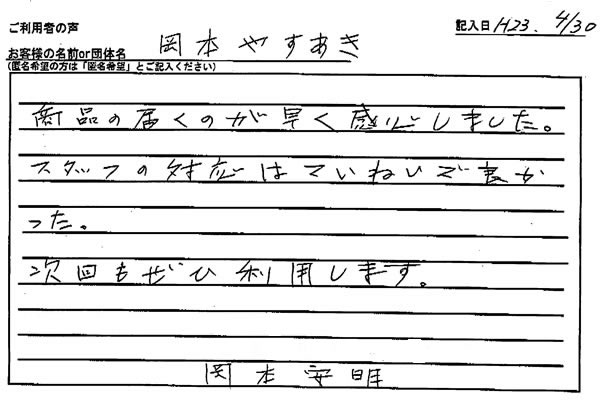 ご利用者の声
記入日 H23. 4/30
お客様の名前or団体名 岡本やすあき
(匿名希望の方は「匿名希望」とご記入ください)
商品の届くのが早く感心しました。
スタッフの対応はていねいで良か
った。
次回もぜひ利用します。
岡本安明